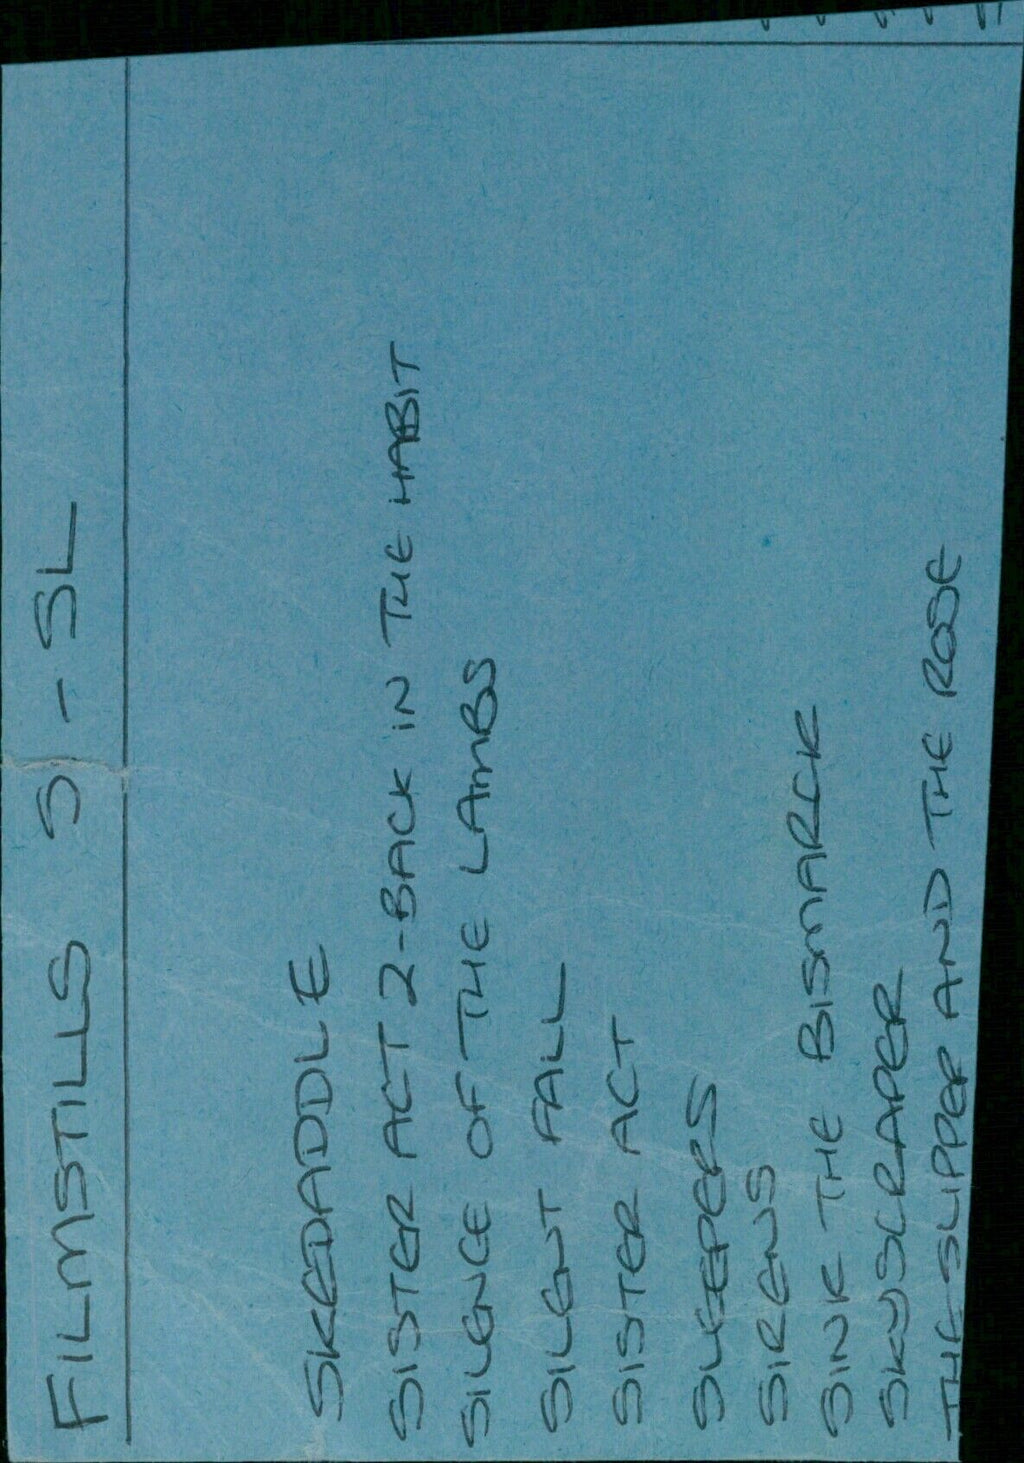 FILMSTILLS SI - SL
SKEDADDLE
SISTER ACT 2 - BACK IN THE HABIT
SILENCE OF THE LAMBS
SILENT FALL
SISTER ACT
SLEEPERS
SIRENS
SINK THE BISMARCK
SKYSCRAPER
THE SLIPPER AND THE ROSE